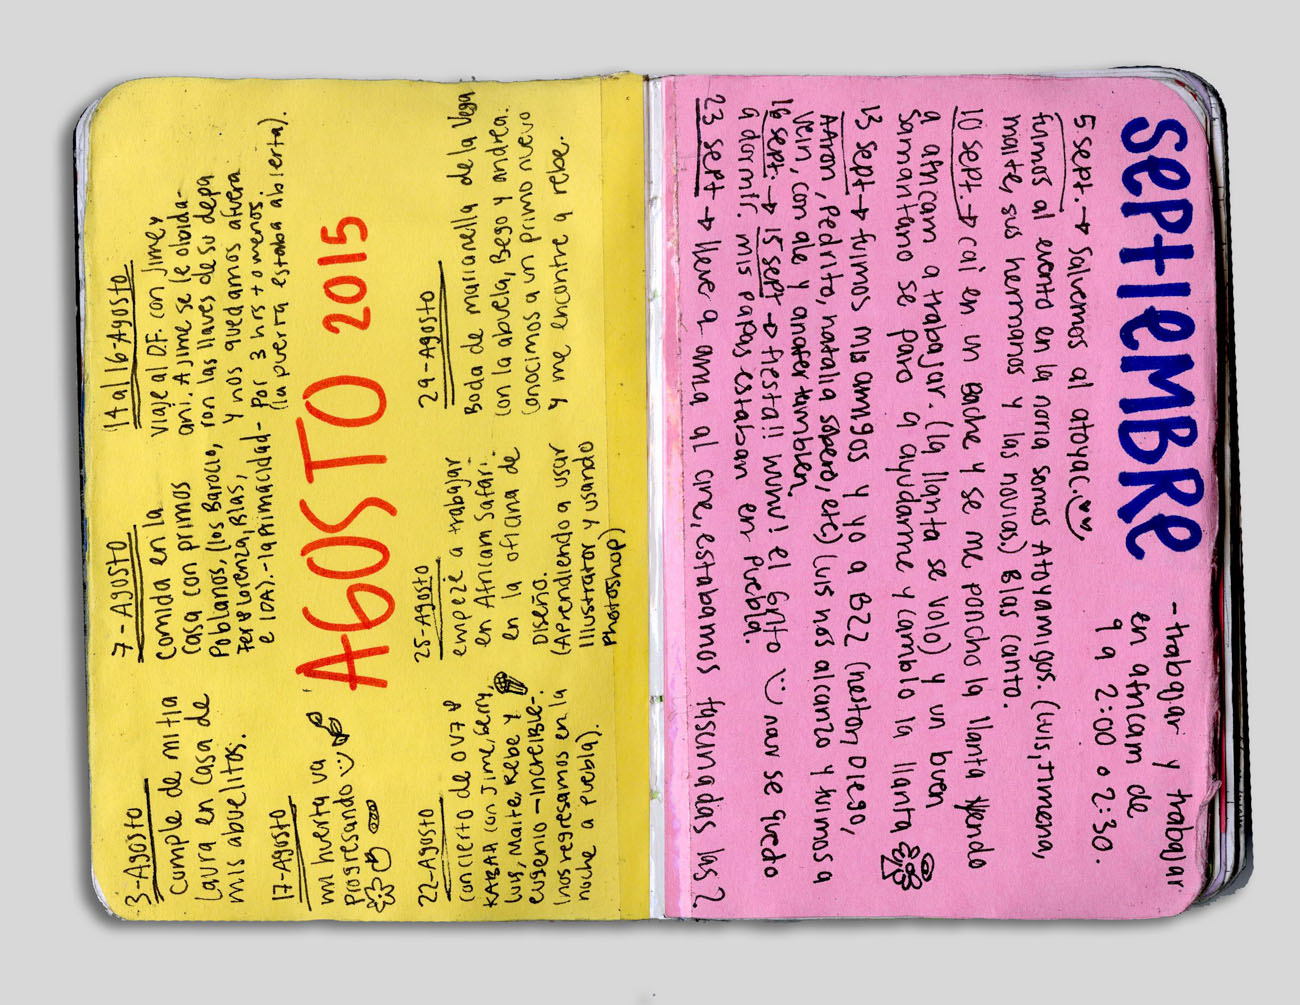 3-Agosto
cumple de mi tia
Laura en casa de
mis abuelitos.
7-Agosto
comida en la
casa con primos
Poblanos, (los Barocio,
Fer y Lorenza, Blas,
e IDA).-la Primacidad-
14 al 16-Agosto
viaje al D.F. con Jime y
ani. A Jime se le olvida-
ron las llaves de su depa
y nos quedamos afuera
Por 3 hrs + o menos.
(la puerta estaba abierta).
AGOSTO 2015
17-Agosto
mi huerta va
progresando
22-Agosto
concierto de OV7 y
KABAH con Jime, Gerry,
Luis, Maite, Rebe y
eugenio -increible-
(nos regresamos en la
noche a Puebla).
25-Agosto
empezé a trabajar
en Africam Safari.
en la oficina de
Diseño.
(Aprendiendo a usar
Illustrator y usando
Photoshop)
29-Agosto
Boda de marianella de la Vega
con la abuela, Bego y andrea.
conocimos a un primo nuevo
y me encontre a rebe.
SEPTIEMBRE
-trabajar y trabajar
en africam de
9 a 2:00 o 2:30.
5 sept. → salvemos al atoyac.
fuimos al evento en la noria somos Atoyamigos. (Luis, Jimena,
maite, sus hermanos y las novias.) Blas canto.
10 sept. → cai en un Bache y se me poncho la llanta yendo
a africam a trabajar. (la llanta se volo) y un buen
samaritano se paro a ayudarme y cambio la llanta
13 sept → fuimos mis amigos y yo a B22 (nestor, Diego,
AAron, Pedrito, natalia sopero, etc) Luis nos alcanzo y fuimos a
Vein, con ale y anafer tambien.
16 sept → 15 sept → fiesta!! wuwu! el Grito nar se quedo
a dormir. mis papas estaban en Puebla.
23 sept → lleve a ama al cine, estabamos fascinadas las 2.